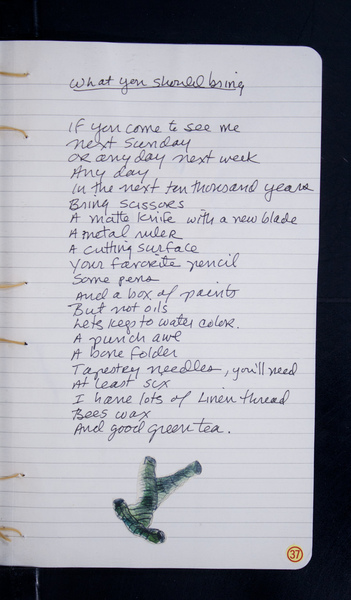 What you should bring
If you come to see me
next Sunday
or any day next week
Any day
In the next ten thousand years
Bring scissors
A matte knife with a new blade
A metal ruler
A cutting surface
Your favorite pencil
Some pens
And a box of paints
But not oils
Lets keep to water color.
A punch awl
A bone folder
Tapestry needles, you'll need
At least six
I have lots of Linen thread
Bees wax
And good green tea.
37